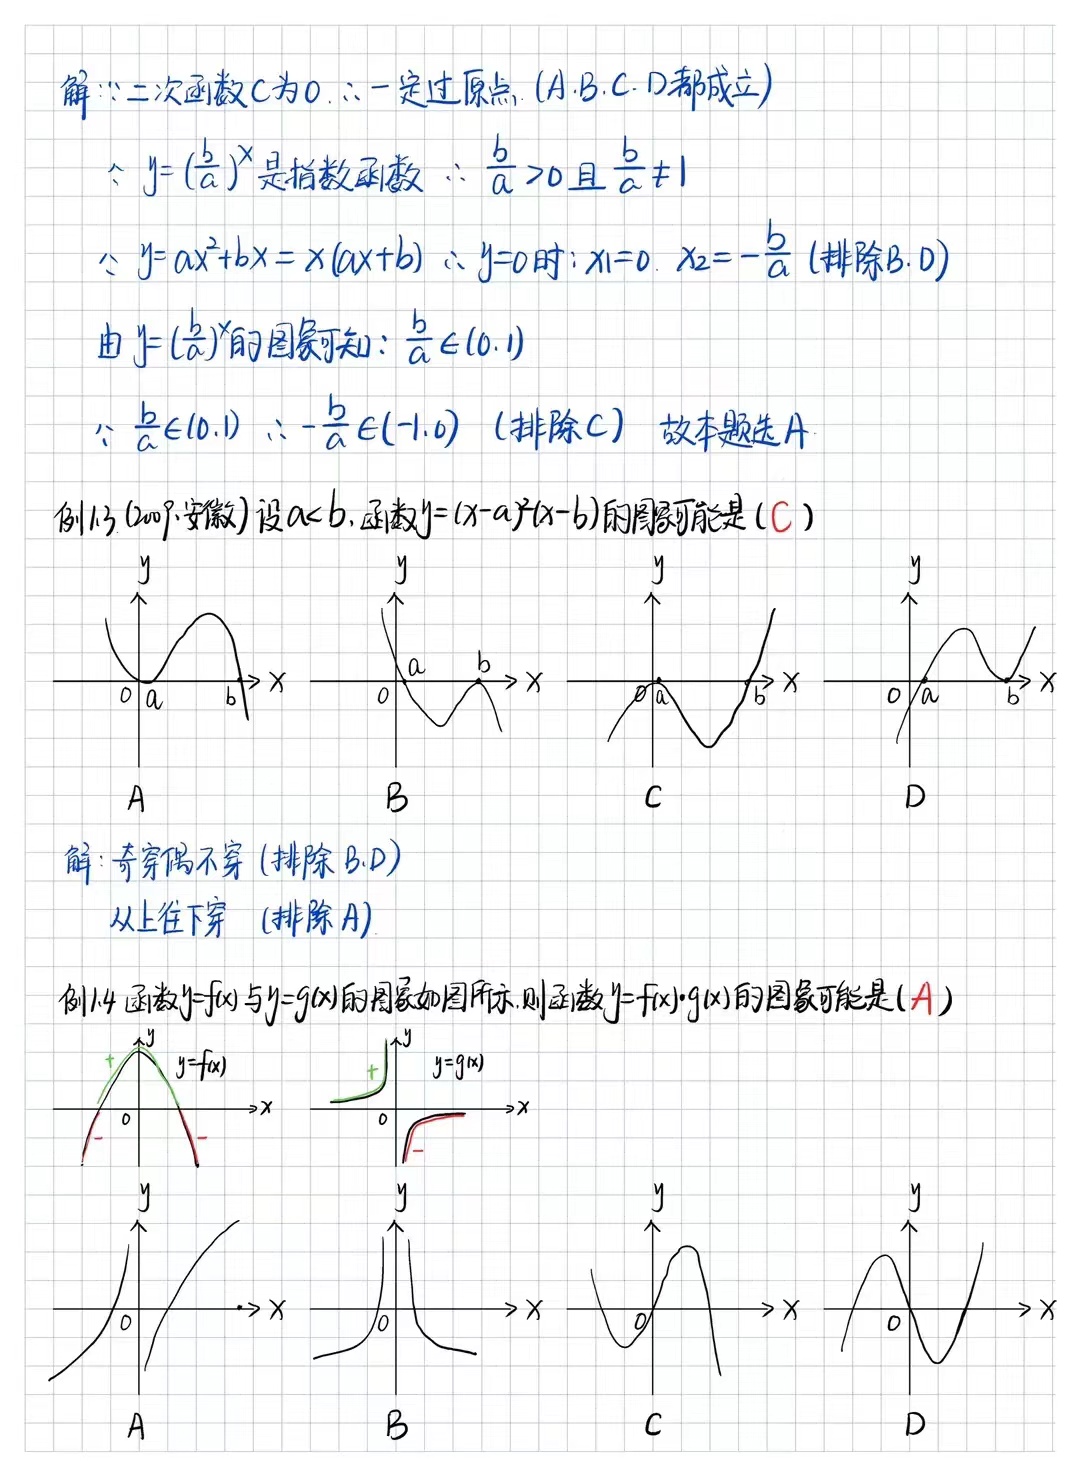 解:∵二次函数C为0.∴一定过原点.(A.B.C.D都成立)
∵ y=(b/a)^x是指数函数 ∴ b/a>0且b/a≠1
∵ y=ax²+bx=x(ax+b) ∴ y=0时:x₁=0. x₂=-b/a (排除B.D)
由y=(b/a)^x的图象可知: b/a∈(0.1)
∵ b/a∈(0.1) ∴ -b/a∈(-1.0) (排除C) 故本题选A.
例1.3(2009.安徽)设a<b,函数y=(x-a)²(x-b)的图象可能是(C)
y y y y
a b
0 a b x 0 x 0 a b x 0 a b x
A B C D
解:奇穿偶不穿(排除B.D)
从上往下穿 (排除A)
例1.4 函数y=f(x)与y=g(x)的图象如图所示.则函数y=f(x)·g(x)的图象可能是(A)
+ y y=f(x) + y y=g(x)
0 x 0 x
- - -
y y y y
0 x 0 x 0 x 0 x
A B C D